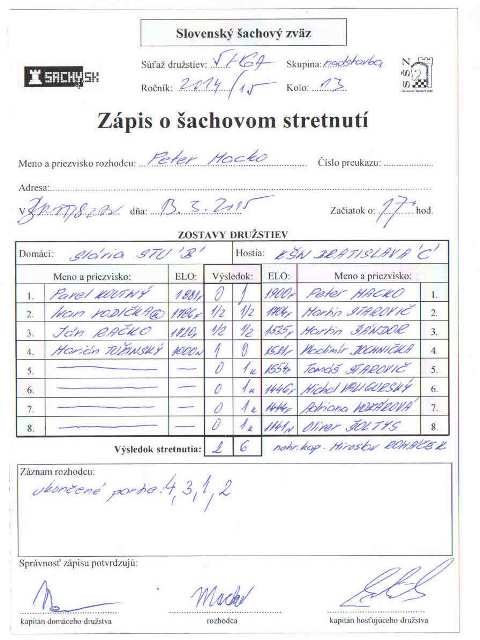 Slovenský šachový zväz
SACHY.SK
Súťaž družstiev: V. liga Skupina: nadstavba
SŠZ
Ročník: 2014/15 Kolo: 13
Zápis o šachovom stretnutí
Meno a priezvisko rozhodcu: Peter Macko Číslo preukazu:
Adresa:
V dňa: 13.3.2015 Začiatok o: 17 hod.
ZOSTAVY DRUŽSTIEV
Domáci: Slávia STU 'B' Hostia: KŠN BRATISLAVA 'C'
Meno a priezvisko: ELO: Výsledok: ELO: Meno a priezvisko:
1. Pavel 0 1 1900 Peter MACKO 1.
2. Ivan VODIČKA 1/2 1/2 Martin STAROVIČ 2.
3. Ján RAČKO 1/2 1/2 1535 Martin ŠÁNDOR 3.
4. Marián 1000 1 0 Vladimír 4.
5. — — 0 1k Tomáš STAROVIČ 5.
6. — — 0 1k Michal 6.
7. — — 0 1k Adriana 7.
8. — — 0 1k Oliver ŠOLTYS 8.
Výsledok stretnutia: 2 6 nehr. kap. Miroslav
Záznam rozhodcu:
ukončené partie: 4, 3, 1, 2
Správnosť zápisu potvrdzujú:
Macko
kapitán domáceho družstva rozhodca kapitán hosťujúceho družstva